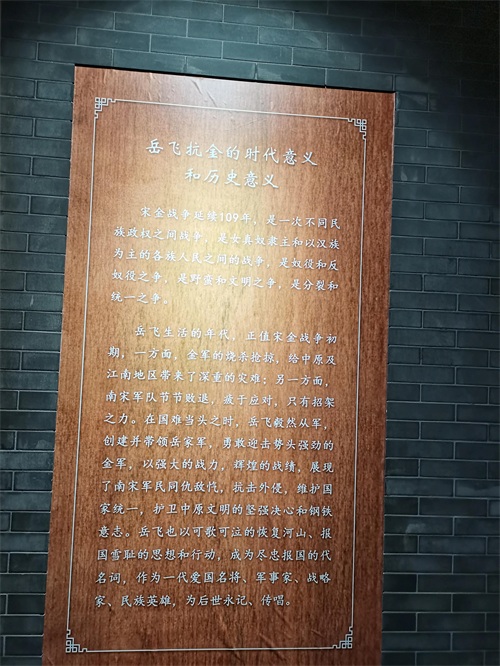 岳飞抗金的时代意义
和历史意义
宋金战争延续109年，是一次不同民
族政权之间战争，是女真奴隶主和以汉族
为主的各族人民之间的战争，是奴役和反
奴役之争，是野蛮和文明之争，是分裂和
统一之争。
岳飞生活的年代，正值宋金战争初
期，一方面，金军的烧杀抢掠，给中原及
江南地区带来了深重的灾难；另一方面，
南宋军队节节败退，疲于应对，只有招架
之力。在国难当头之时，岳飞毅然从军，
创建并带领岳家军，勇敢迎击势头强劲的
金军，以强大的战力，辉煌的战绩，展现
了南宋军民同仇敌忾，抗击外侵，维护国
家统一，护卫中原文明的坚强决心和钢铁
意志。岳飞也以可歌可泣的恢复河山、报
国雪耻的思想和行动，成为尽忠报国的代
名词，作为一代爱国名将、军事家、战略
家、民族英雄，为后世永记、传唱。